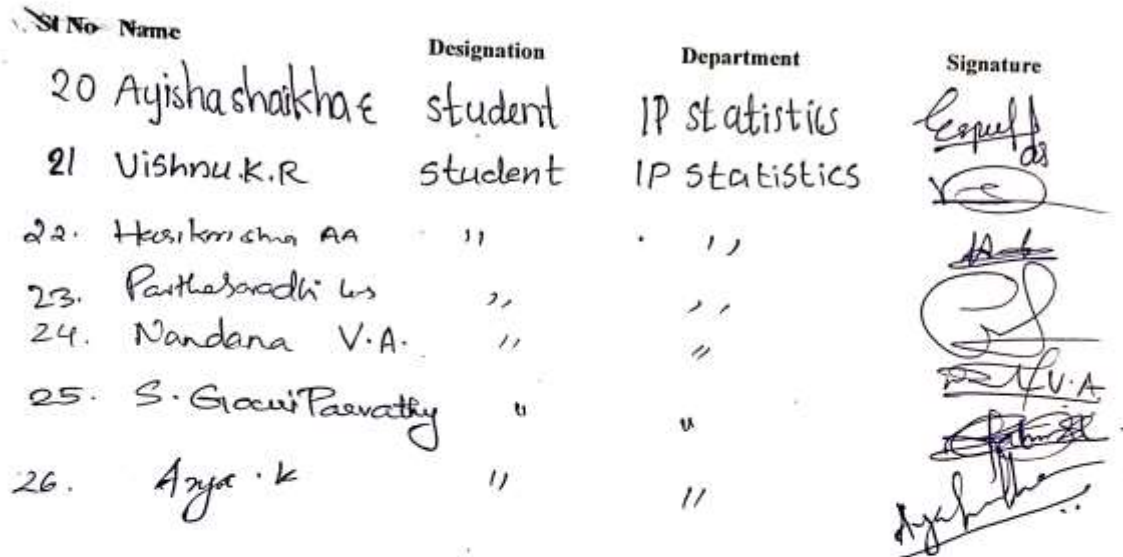 Sl No Name Designation Department Signature
20 Ayishashaikha E student IP statistics
21 Vishnu.K.R student IP statistics
22. Harikrishna AA ,, ,,
23. Parthasaradhi ,, ,,
24. Nandana V.A. ,, ,, V.A
25. S. Gowri Parvathy ,, ,,
26. Arya . K ,, ,,